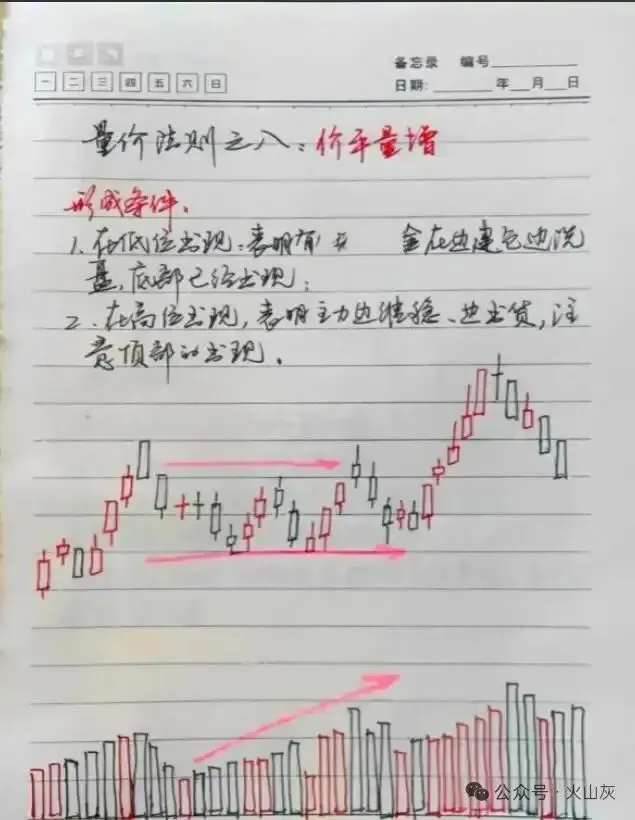 备忘录 编号
一 二 三 四 五 六 日
日期: 年 月 日
量价法则之八：价平量增
形成条件。
1、在低位出现：表明有 金在边建仓边洗
盘，底部已经出现；
2、在高位出现，表明主力边维稳、边出货，注
意顶部的出现。
公众号·火山灰